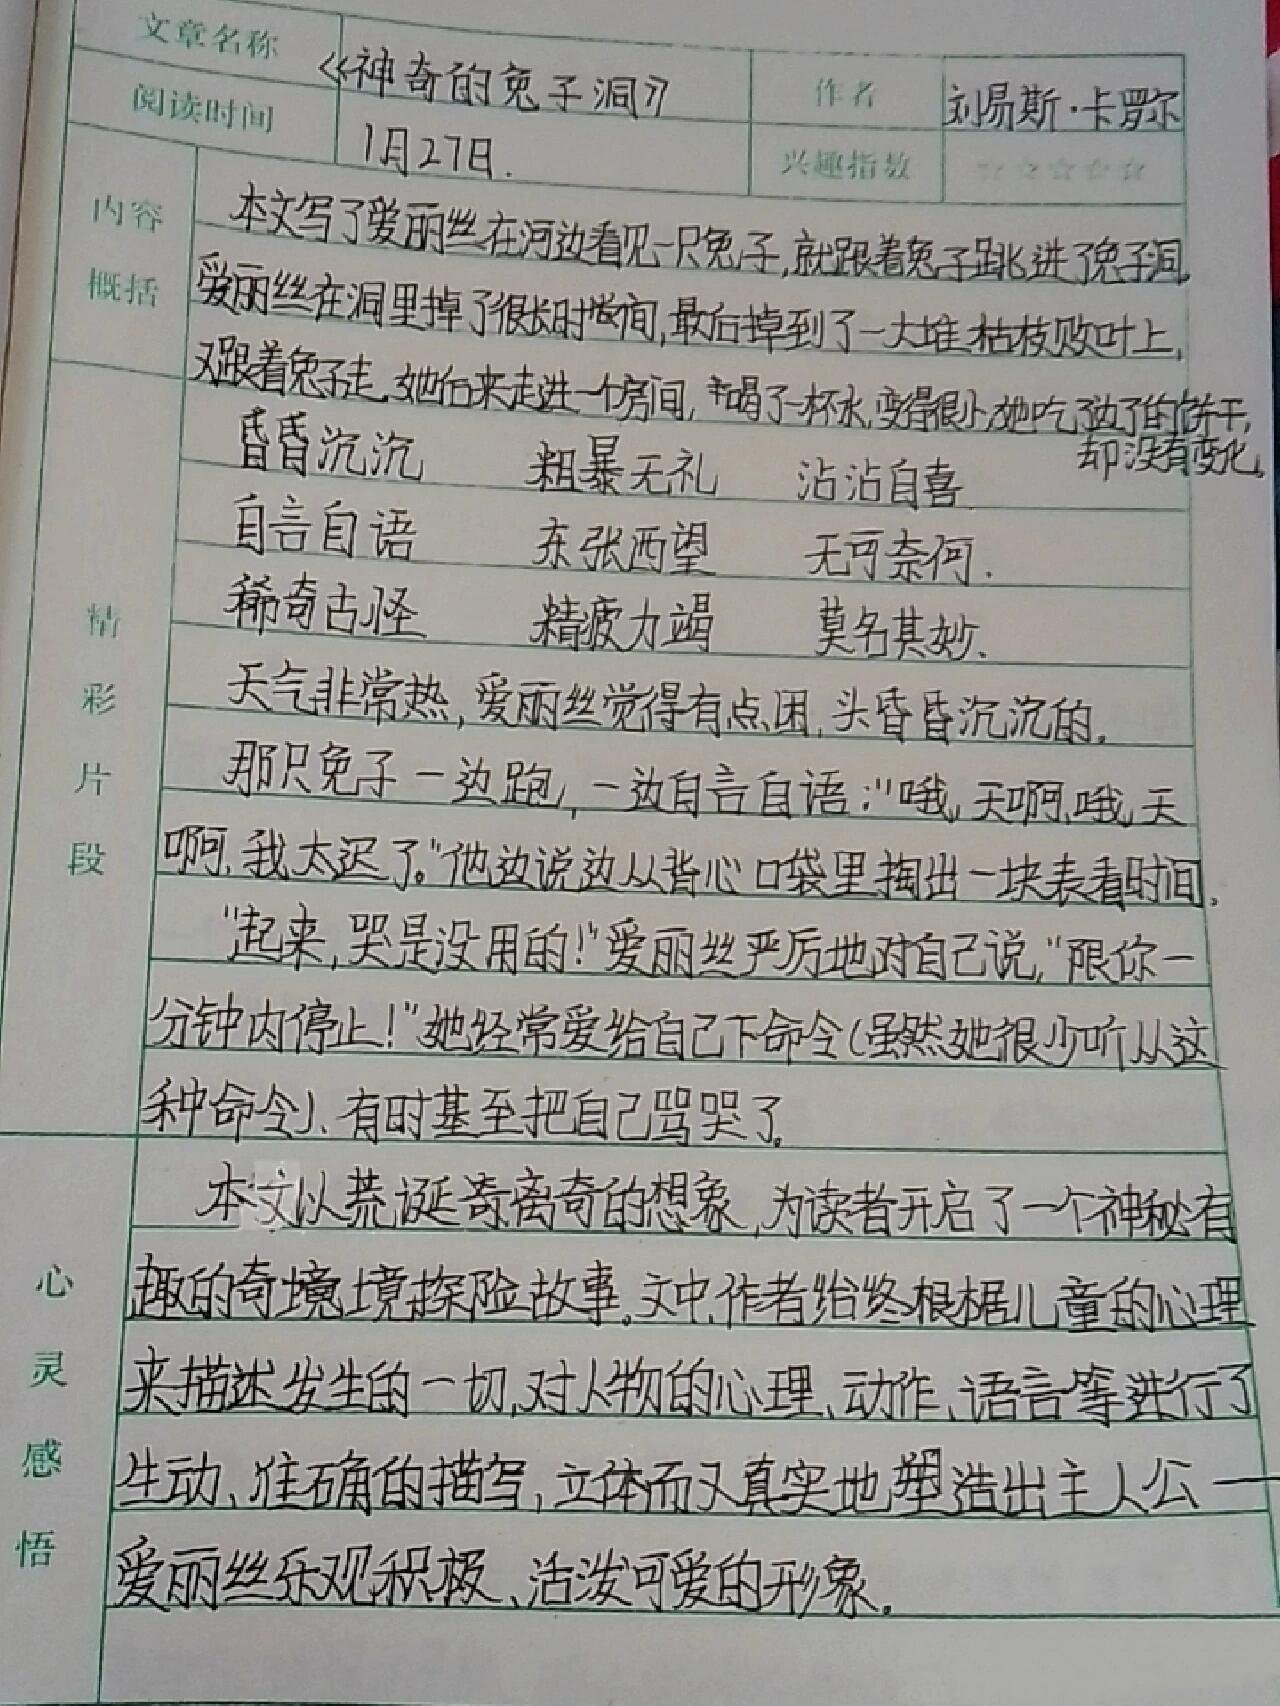 文章名称 《神奇的兔子洞》 作者 刘易斯·卡罗尔
阅读时间 1月27日. 兴趣指数 ☆☆☆☆☆
内容概括
本文写了爱丽丝在河边看见一只兔子,就跟着兔子跳进了兔子洞.
爱丽丝在洞里掉了很长时间,最后掉到了一大堆枯枝败叶上,
又跟着兔子走.她后来走进一个房间,喝了一杯水,变得很小,她吃了边了的饼干,
却没有变化.
精彩片段
昏昏沉沉 粗暴无礼 沾沾自喜.
自言自语 东张西望 无可奈何.
稀奇古怪 精疲力竭 莫名其妙.
天气非常热,爱丽丝觉得有点困,头昏昏沉沉的.
那只兔子一边跑,一边自言自语:"哦,天啊,哦,天
啊,我太迟了。"他边说边从背心口袋里掏出一块表看时间.
"起来,哭是没用的!"爱丽丝严厉地对自己说,"限你一
分钟内停止!"她经常爱给自己下命令(虽然她很少听从这
种命令)、有时甚至把自己骂哭了.
心灵感悟
本文以荒诞奇离奇的想象,为读者开启了一个神秘有
趣的奇境境探险故事.文中,作者始终根据儿童的心理
来描述发生的一切,对人物的心理、动作、语言等进行了
生动、准确的描写,立体而又真实地塑造出主人公——
爱丽丝乐观积极、活泼可爱的形象.